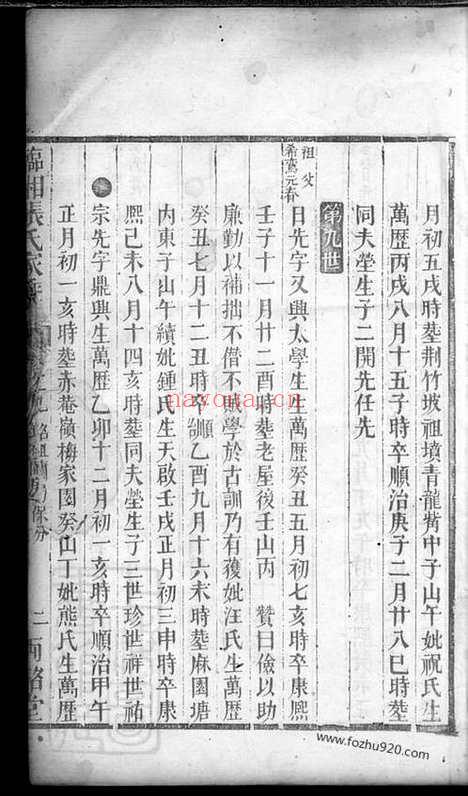 月初五戌時塟荆竹坡祖墳青龍觜申子山午妣祝氏生
萬歷丙戌八月十五子時卒順治庚子二月廿八巳時塟
同夫塋生子二開先任先
第九世
祖父
希鸞元春
日先字又與太學生生萬歷癸丑五月初七亥時卒康熙
壬子十一月廿二酉時塟老屋後壬山丙 贊曰儉以助
廉勤以補拙不僭不 學於古訓乃有獲妣汪氏生萬歷
癸丑七月十二丑時卒順 乙酉九月十六未時塟麻園塘
内東子山午續妣鍾氏生天啟壬戌正月初三申時卒康
熙己未八月十四亥時塟同夫塋生子三世珍世祥世祐
宗先字鼎興生萬歷乙卯十二月初一亥時卒順治甲午
正月初一亥時塟赤菴嶺梅家園癸山丁妣熊氏生萬歷
臨湘張氏家譜
二 兩銘堂
nayona.cn
www.fozhu920.com